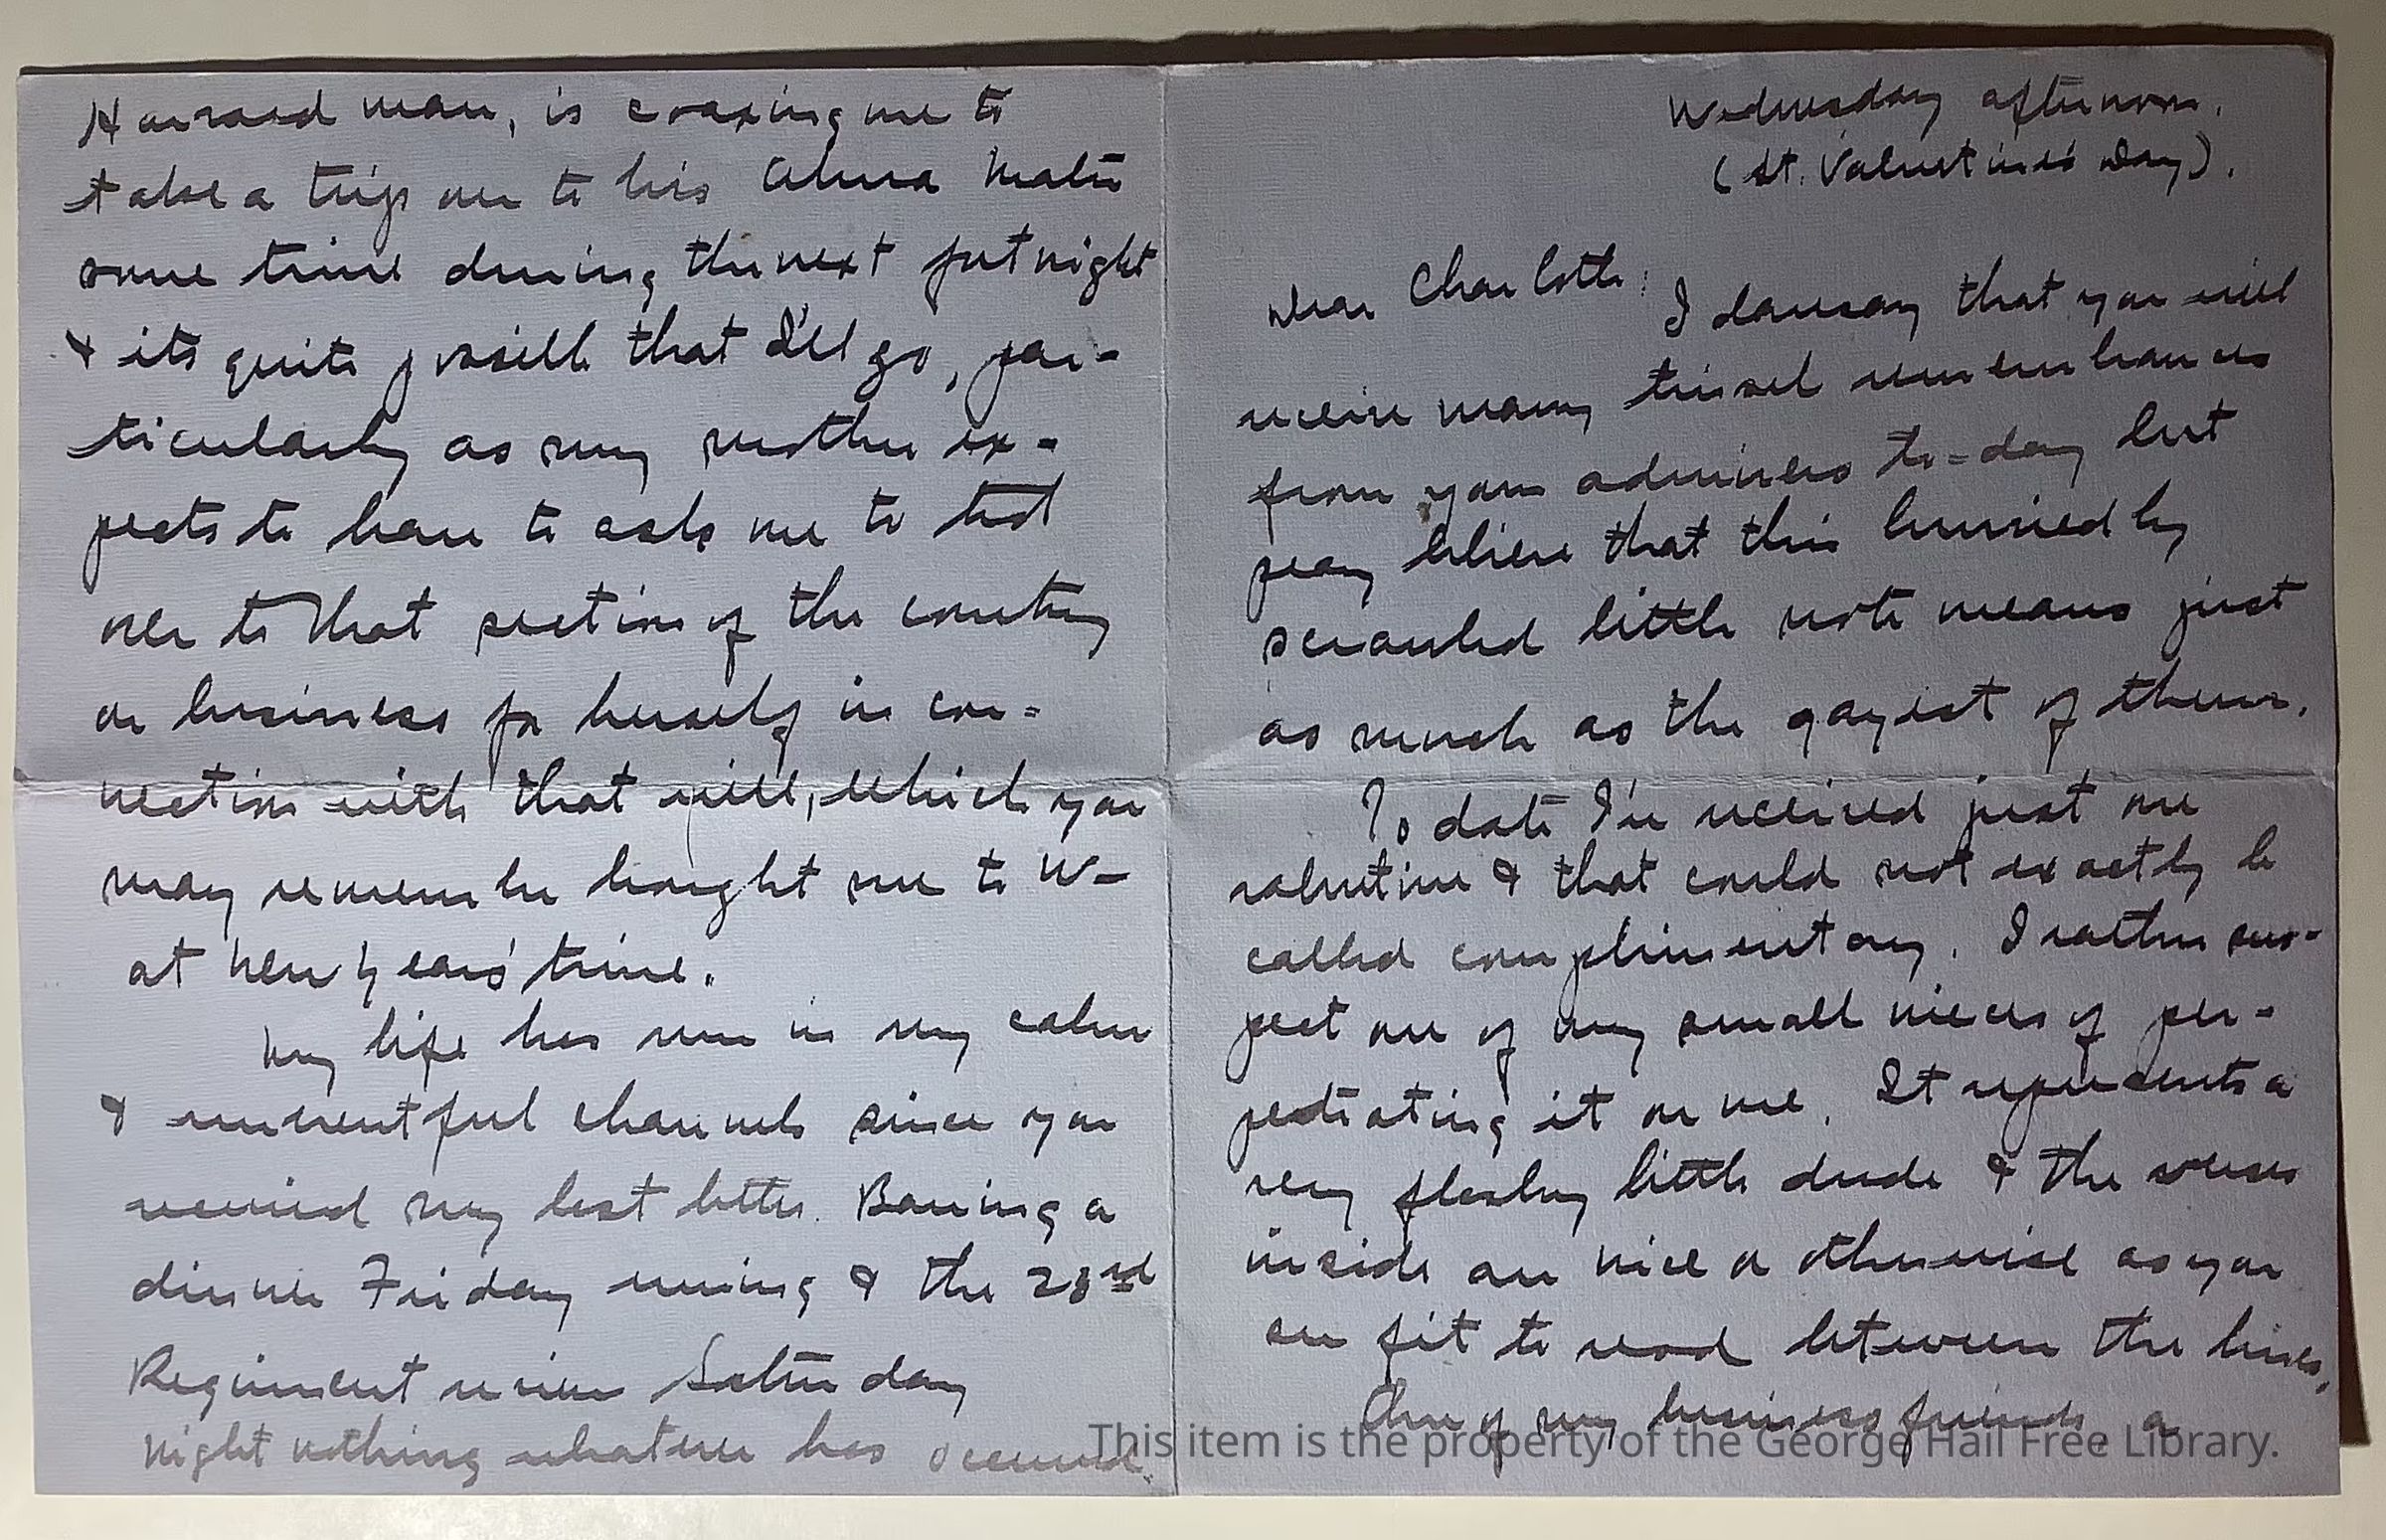 Wednesday afternoon.
(St. Valentine's Day).
Dear Charlotte:
I daresay that you will
receive many tinsel remembrances
from your admirers to-day but
pray believe that this hurriedly
scrawled little note means just
as much as the gayest of them.
To date I've received just one
valentine & that could not exactly be
called complimentary. I rather sus-
pect one of my small nieces of per-
petrating it on me. It represents a
very flashy little dude & the verses
inside are nice or otherwise as you
see fit to read between the lines.
One of my business friends, a
Harvard man, is coaxing me to
take a trip on to his Alma Mater
some time during the next fortnight
& its quite possible that I'll go, par-
ticularly as my mother ex-
pects to have to ask me to
over to that section of the country
on business for herself in con-
nection with that will, which you
may remember brought me to W-
at New Years' time.
My life has run in my calm
& uneventful channels since you
received my last letter. Barring a
dinner Friday evening & the 23rd
Regiment review Saturday
night nothing whatever has occurred.
This item is the property of the George Hail Free Library.